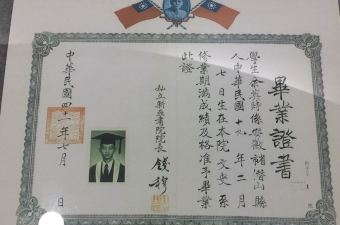 畢業證書
學生余英時係安徽省潛山縣
人中華民國十九年二月
七日生在本院文史系
修業期滿成績及格准予畢業
此證
私立新亞書院院長 錢穆
中華民國四十一年七月 日